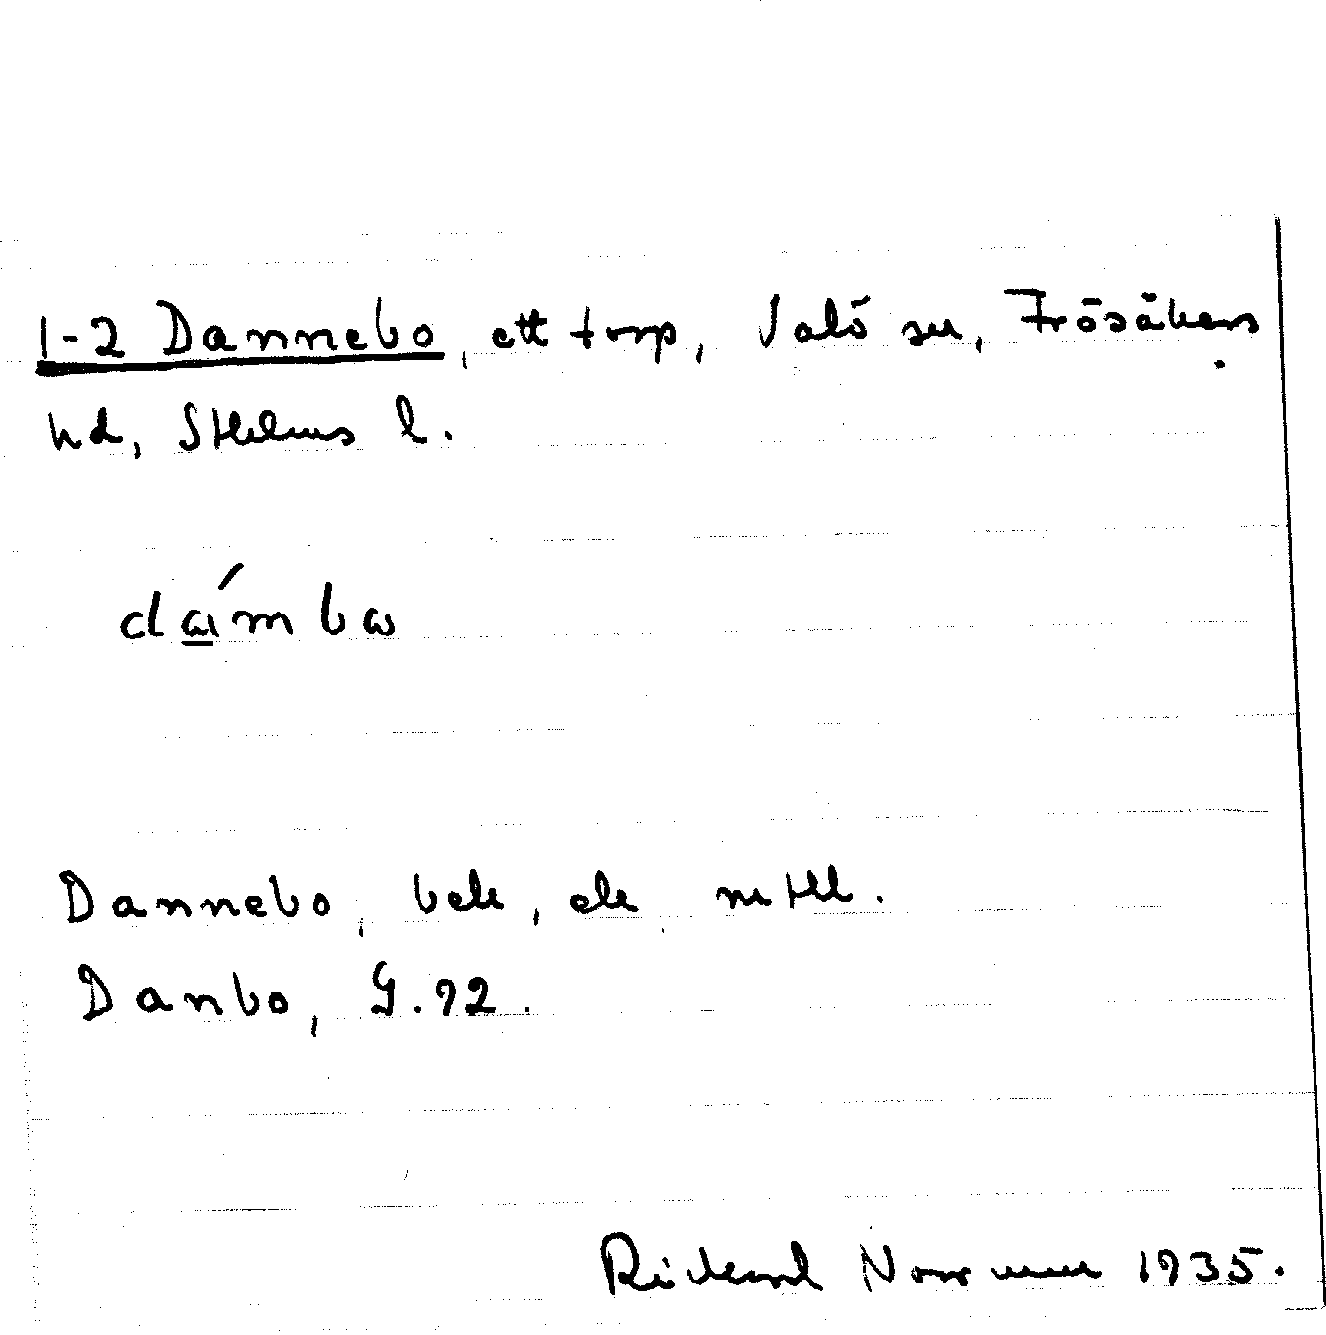 1-2 Dannebo, ett torp, Valö sn, Frösåkers
hd, Sthlms l.
dámbω
Dannebo,
Danbo, G.92.
Rickard Norrman 1935.